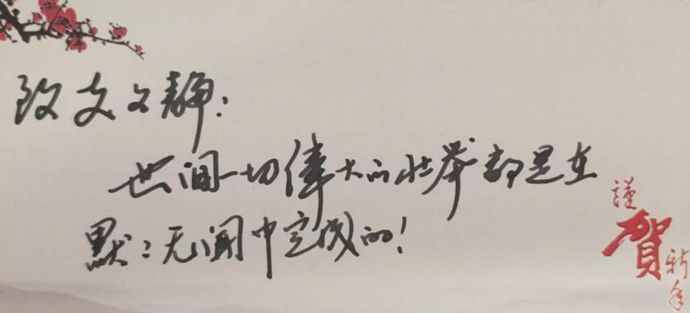 致文文静：
世间一切偉大的壮举都是在
默：无闻中完成的！
謹
賀
新年